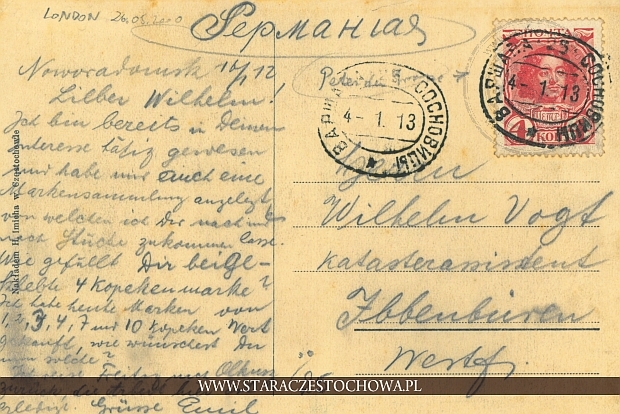 LONDON 26.05.2000
Германія
Noworadomsk
Lieber Wilhelm!
Ich bin bereits in Deinem
Interesse tätig gewesen
und habe mir auch eine
Markensammlung angelegt,
von welchen ich Dir nach und
nach Stücke zukommen lasse.
Wie gefällt Dir beige-
klebte 4 Kopekenmarke?
Ich habe heute Marken von
1, 2, 3, 4, 7 und 10 Kopeken Wert
gekauft, wie wünschest Du
Grüsse Emil
Nakładem H. Imicha w Częstochowie
Peter der Grosse
ПОЧТА
4 КОП
ВАРШАВА СОСНОВИЦЫ
4-1.13
ВАРШАВА СОСНОВИЦЫ
4-1.13
Herrn
Wilhelm Vogt
Katasterassistent
Ibbenbüren
Westf.
WWW.STARACZESTOCHOWA.PL